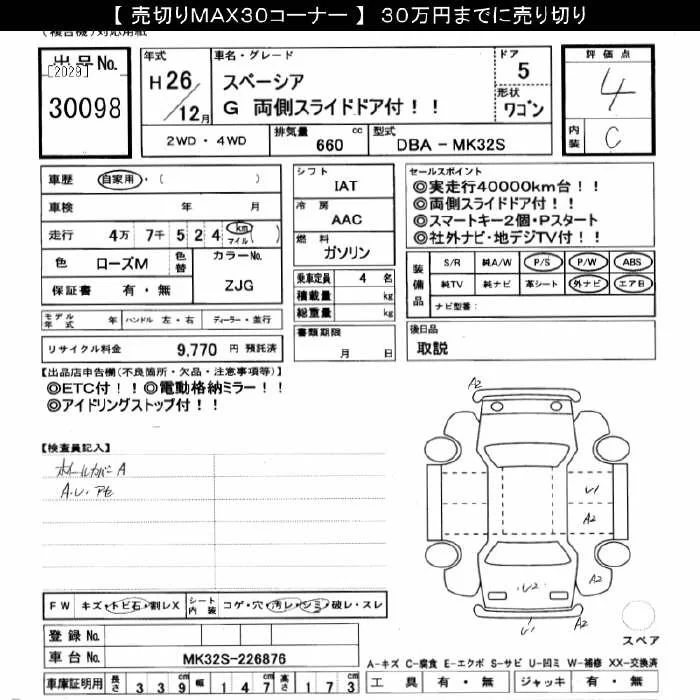 【 売切りMAX30コーナー 】 30万円までに売り切り
(複合機)対応用紙
出品No.
[2029]
30098
年式
H26/12月
車名・グレード
スペーシア
G 両側スライドドア付!!
ドア
5
形状
ワゴン
評価点
4
内装
C
2WD・4WD
排気量
660 cc
型式
DBA - MK32S
車歴 自家用・( )
車検 年 月
走行 4万 7千 5 2 4 km マイル ( )
色 ローズM 色替
カラーNo.
ZJG
保証書 有・無
シフト
IAT
冷房
AAC
燃料
ガソリン
乗車定員 4 名
積載量 kg
総重量 kg
書類期限
月 日
セールスポイント
◎実走行40000km台!!
◎両側スライドドア付!!
◎スマートキー2個・Pスタート
◎社外ナビ・地デジTV付!!
装備品
S/R 純A/W P/S P/W ABS
純TV 純ナビ 革シート 外ナビ エアB
ナビ型番:
モデル年式 年 ハンドル 左・右 ディーラー・並行
リサイクル料金 9,770 円 預託済
後日品
取説
【出品店申告欄(不良箇所・欠品・注意事項等)】
◎ETC付!!◎電動格納ミラー!!
◎アイドリングストップ付!!
【検査員記入】
ホイールカバーA
A.U.
A2
U1
A2
A2
U2
U1
A2
スペア
FW キズ・トビ石・割レX
シート内装 コゲ・穴・汚レ・シミ・破レ・スレ
登録No.
車台No. MK32S-226876
車庫証明用 長さ 3 3 9 幅 1 4 7 高さ 1 7 3
A-キズ C-腐食 E-エクボ S-サビ U-凹ミ W-補修 XX-交換済
工具 有・無 ジャッキ 有・無